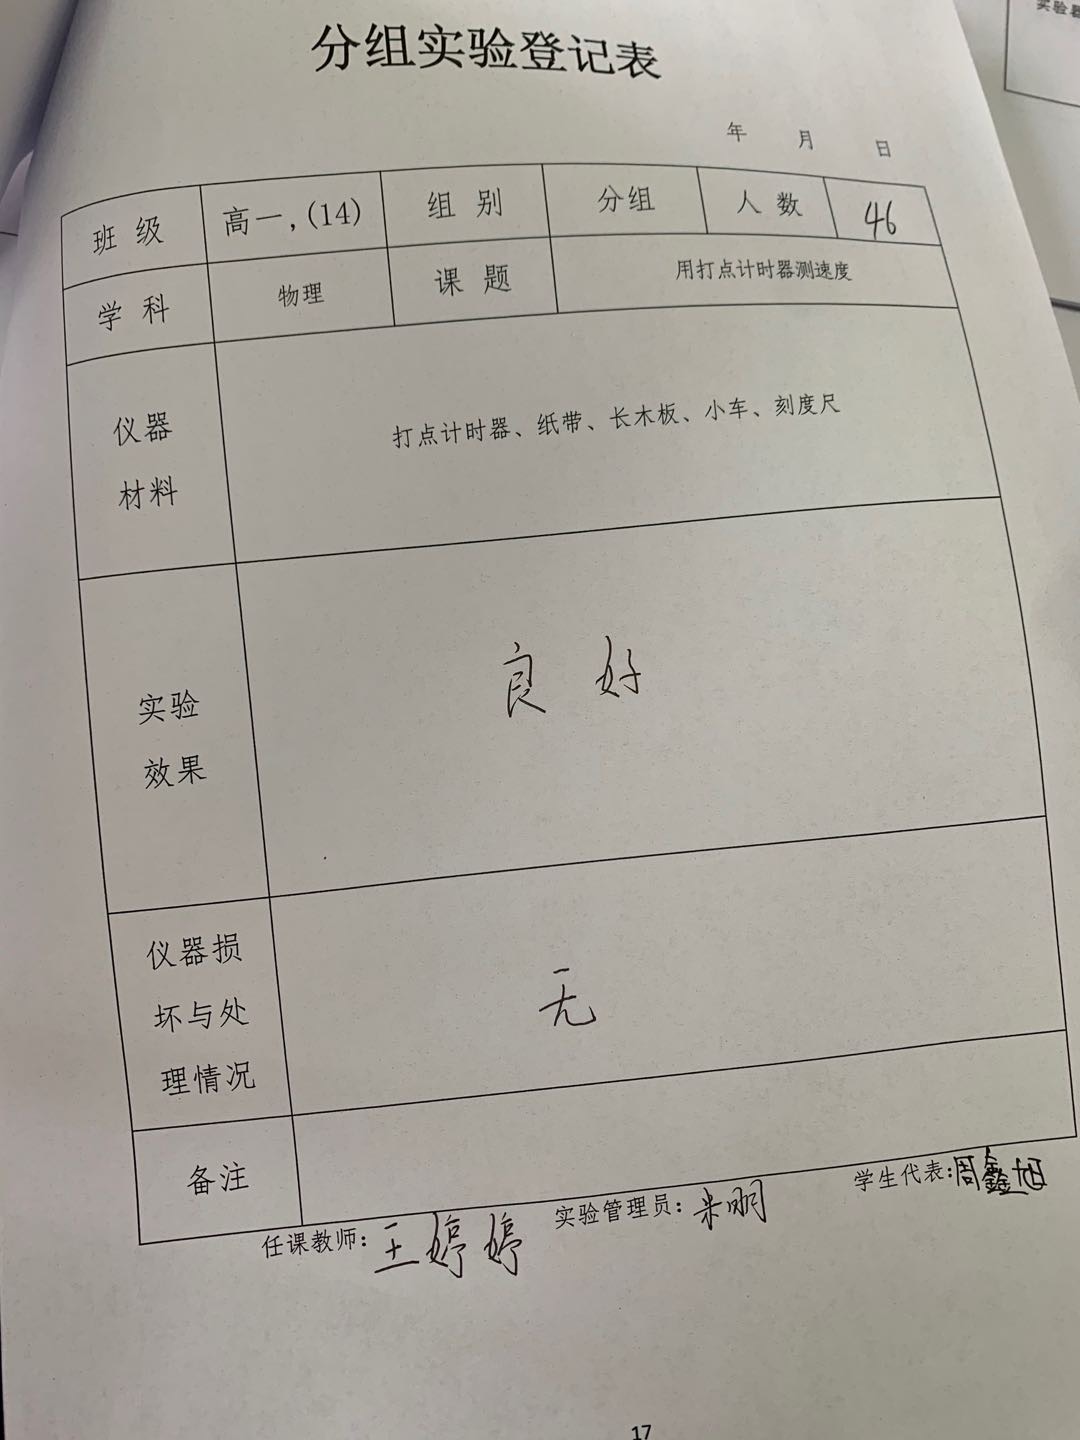 分组实验登记表
年 月 日
班 级 高一,(14) 组 别 分组 人 数 46
学 科 物理 课 题 用打点计时器测速度
仪器
材料
打点计时器、纸带、长木板、小车、刻度尺
实验
效果
良 好
仪器损
坏与处
理情况
无
备注
任课教师:王婷婷 实验管理员:米明 学生代表:周鑫旭
17
实验器